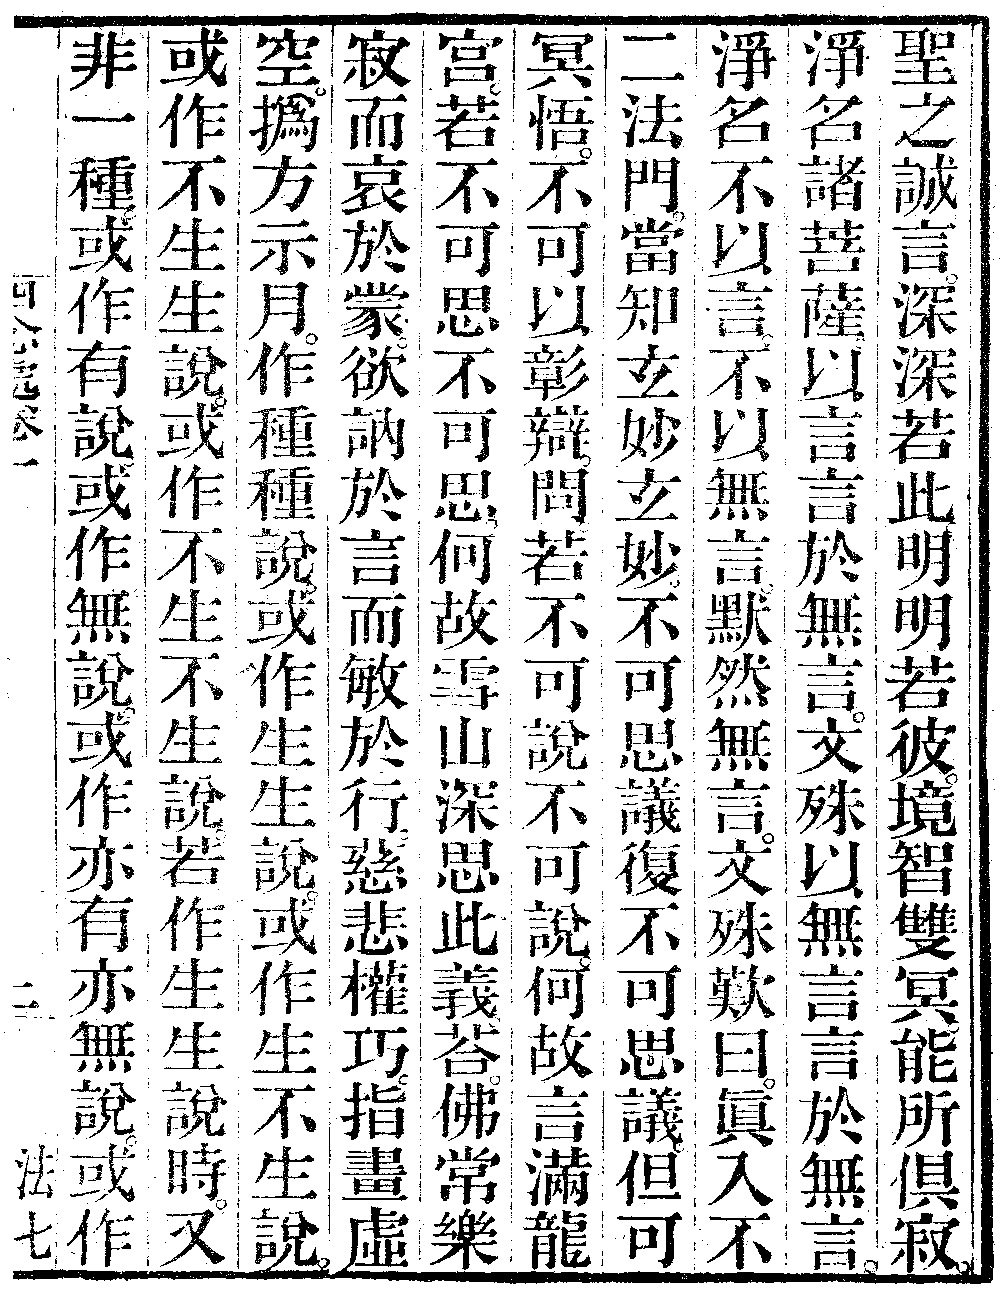 聖之誠言。深深若此明明若彼。境智雙冥。能所俱寂。
淨名諸菩薩。以言言於無言。文殊以無言言於無言。
淨名不以言。不以無言。默然無言。文殊歎曰。眞入不
二法門。當知玄妙玄妙。不可思議復不可思議。但可
冥悟。不可以彰辯。問若不可說不可說。何故言滿龍
宮。若不可思不可思。何故雪山深思此義。荅。佛常樂
寂而哀於蒙。欲訥於言而敏於行慈悲權巧。指畫虛
空。撝方示月。作種種說。或作生生說。或作生不生說。
或作不生生說。或作不生不生說。若作生生說時。又
非一種。或作有說或作無說。或作亦有亦無說。或作
四念處卷一
二
法七